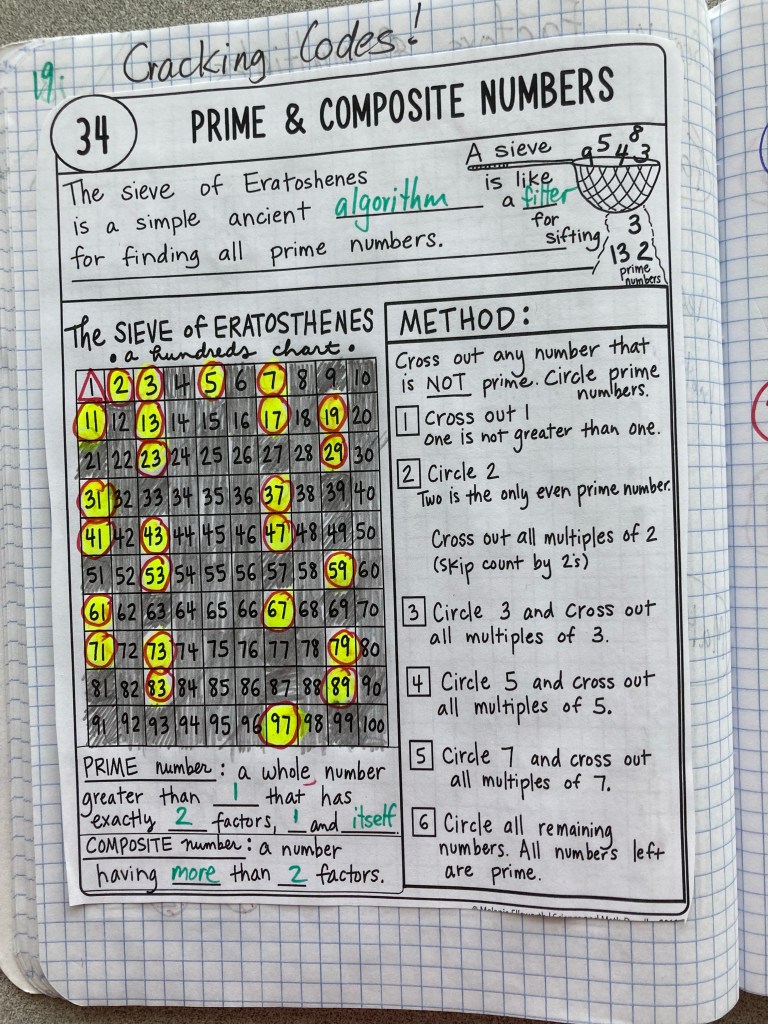 19.
Cracking Codes!
34
PRIME & COMPOSITE NUMBERS
The sieve of Eratoshenes
is a simple ancient algorithm
for finding all prime numbers.
A sieve
is like
a filter
for
sifting
9 5 4 8 3
3
13 2
prime
numbers
The SIEVE of ERATOSTHENES
• a hundreds chart •
1 2 3 4 5 6 7 8 9 10
11 12 13 14 15 16 17 18 19 20
21 22 23 24 25 26 27 28 29 30
31 32 33 34 35 36 37 38 39 40
41 42 43 44 45 46 47 48 49 50
51 52 53 54 55 56 57 58 59 60
61 62 63 64 65 66 67 68 69 70
71 72 73 74 75 76 77 78 79 80
81 82 83 84 85 86 87 88 89 90
91 92 93 94 95 96 97 98 99 100
PRIME number: a whole number
greater than 1 that has
exactly 2 factors, 1 and itself
COMPOSITE number: a number
having more than 2 factors.
METHOD:
Cross out any number that
is NOT prime. Circle prime
numbers.
1 Cross out 1
one is not greater than one.
2 Circle 2
Two is the only even prime number.
Cross out all multiples of 2
(skip count by 2's)
3 Circle 3 and cross out
all multiples of 3.
4 Circle 5 and cross out
all multiples of 5.
5 Circle 7 and cross out
all multiples of 7.
6 Circle all remaining
numbers. All numbers left
are prime.